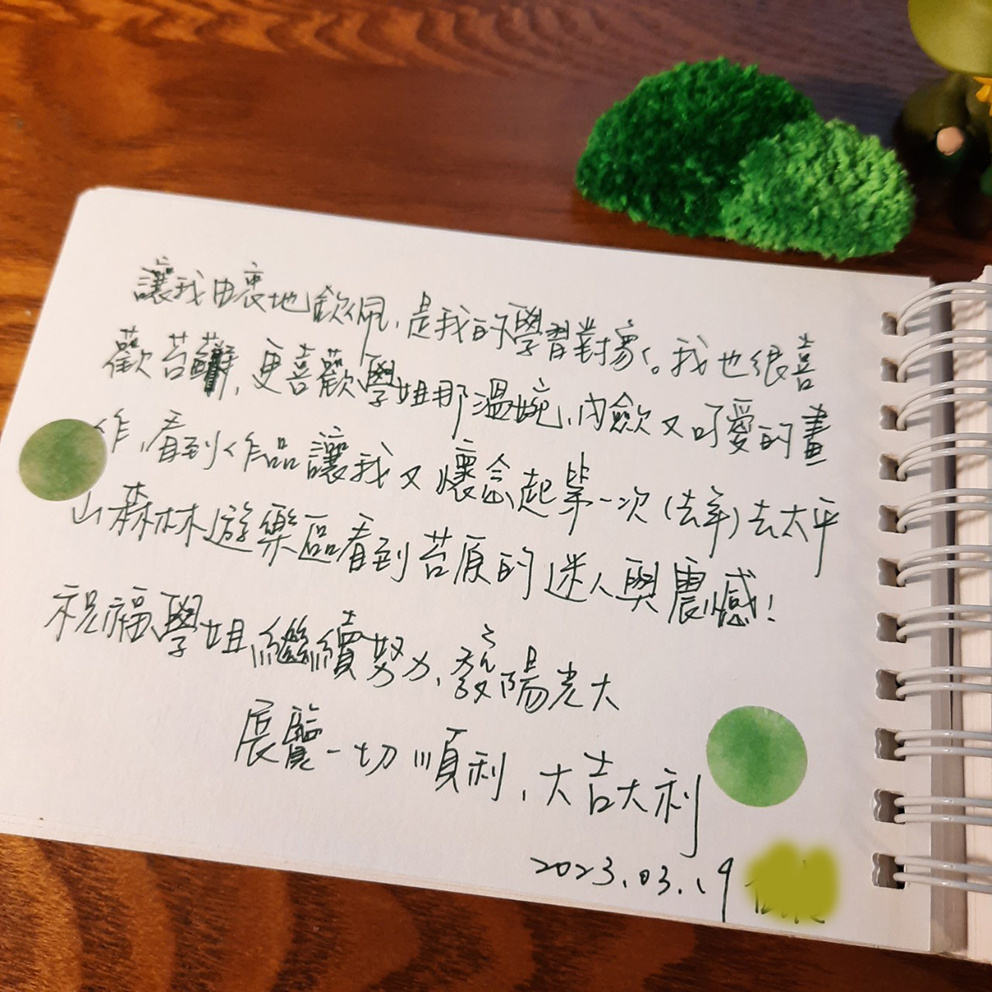 讓我由衷地欽佩、是我的學習對象。我也很喜
歡苔蘚，更喜歡學姐那溫婉、內斂又可愛的畫
作，看到作品讓我又懷念起第一次(去年)去太平
山森林遊樂區看到苔原的迷人與震憾！
祝福學姐繼續努力、發陽光大
展覽一切順利，大吉大利
2023.03.19